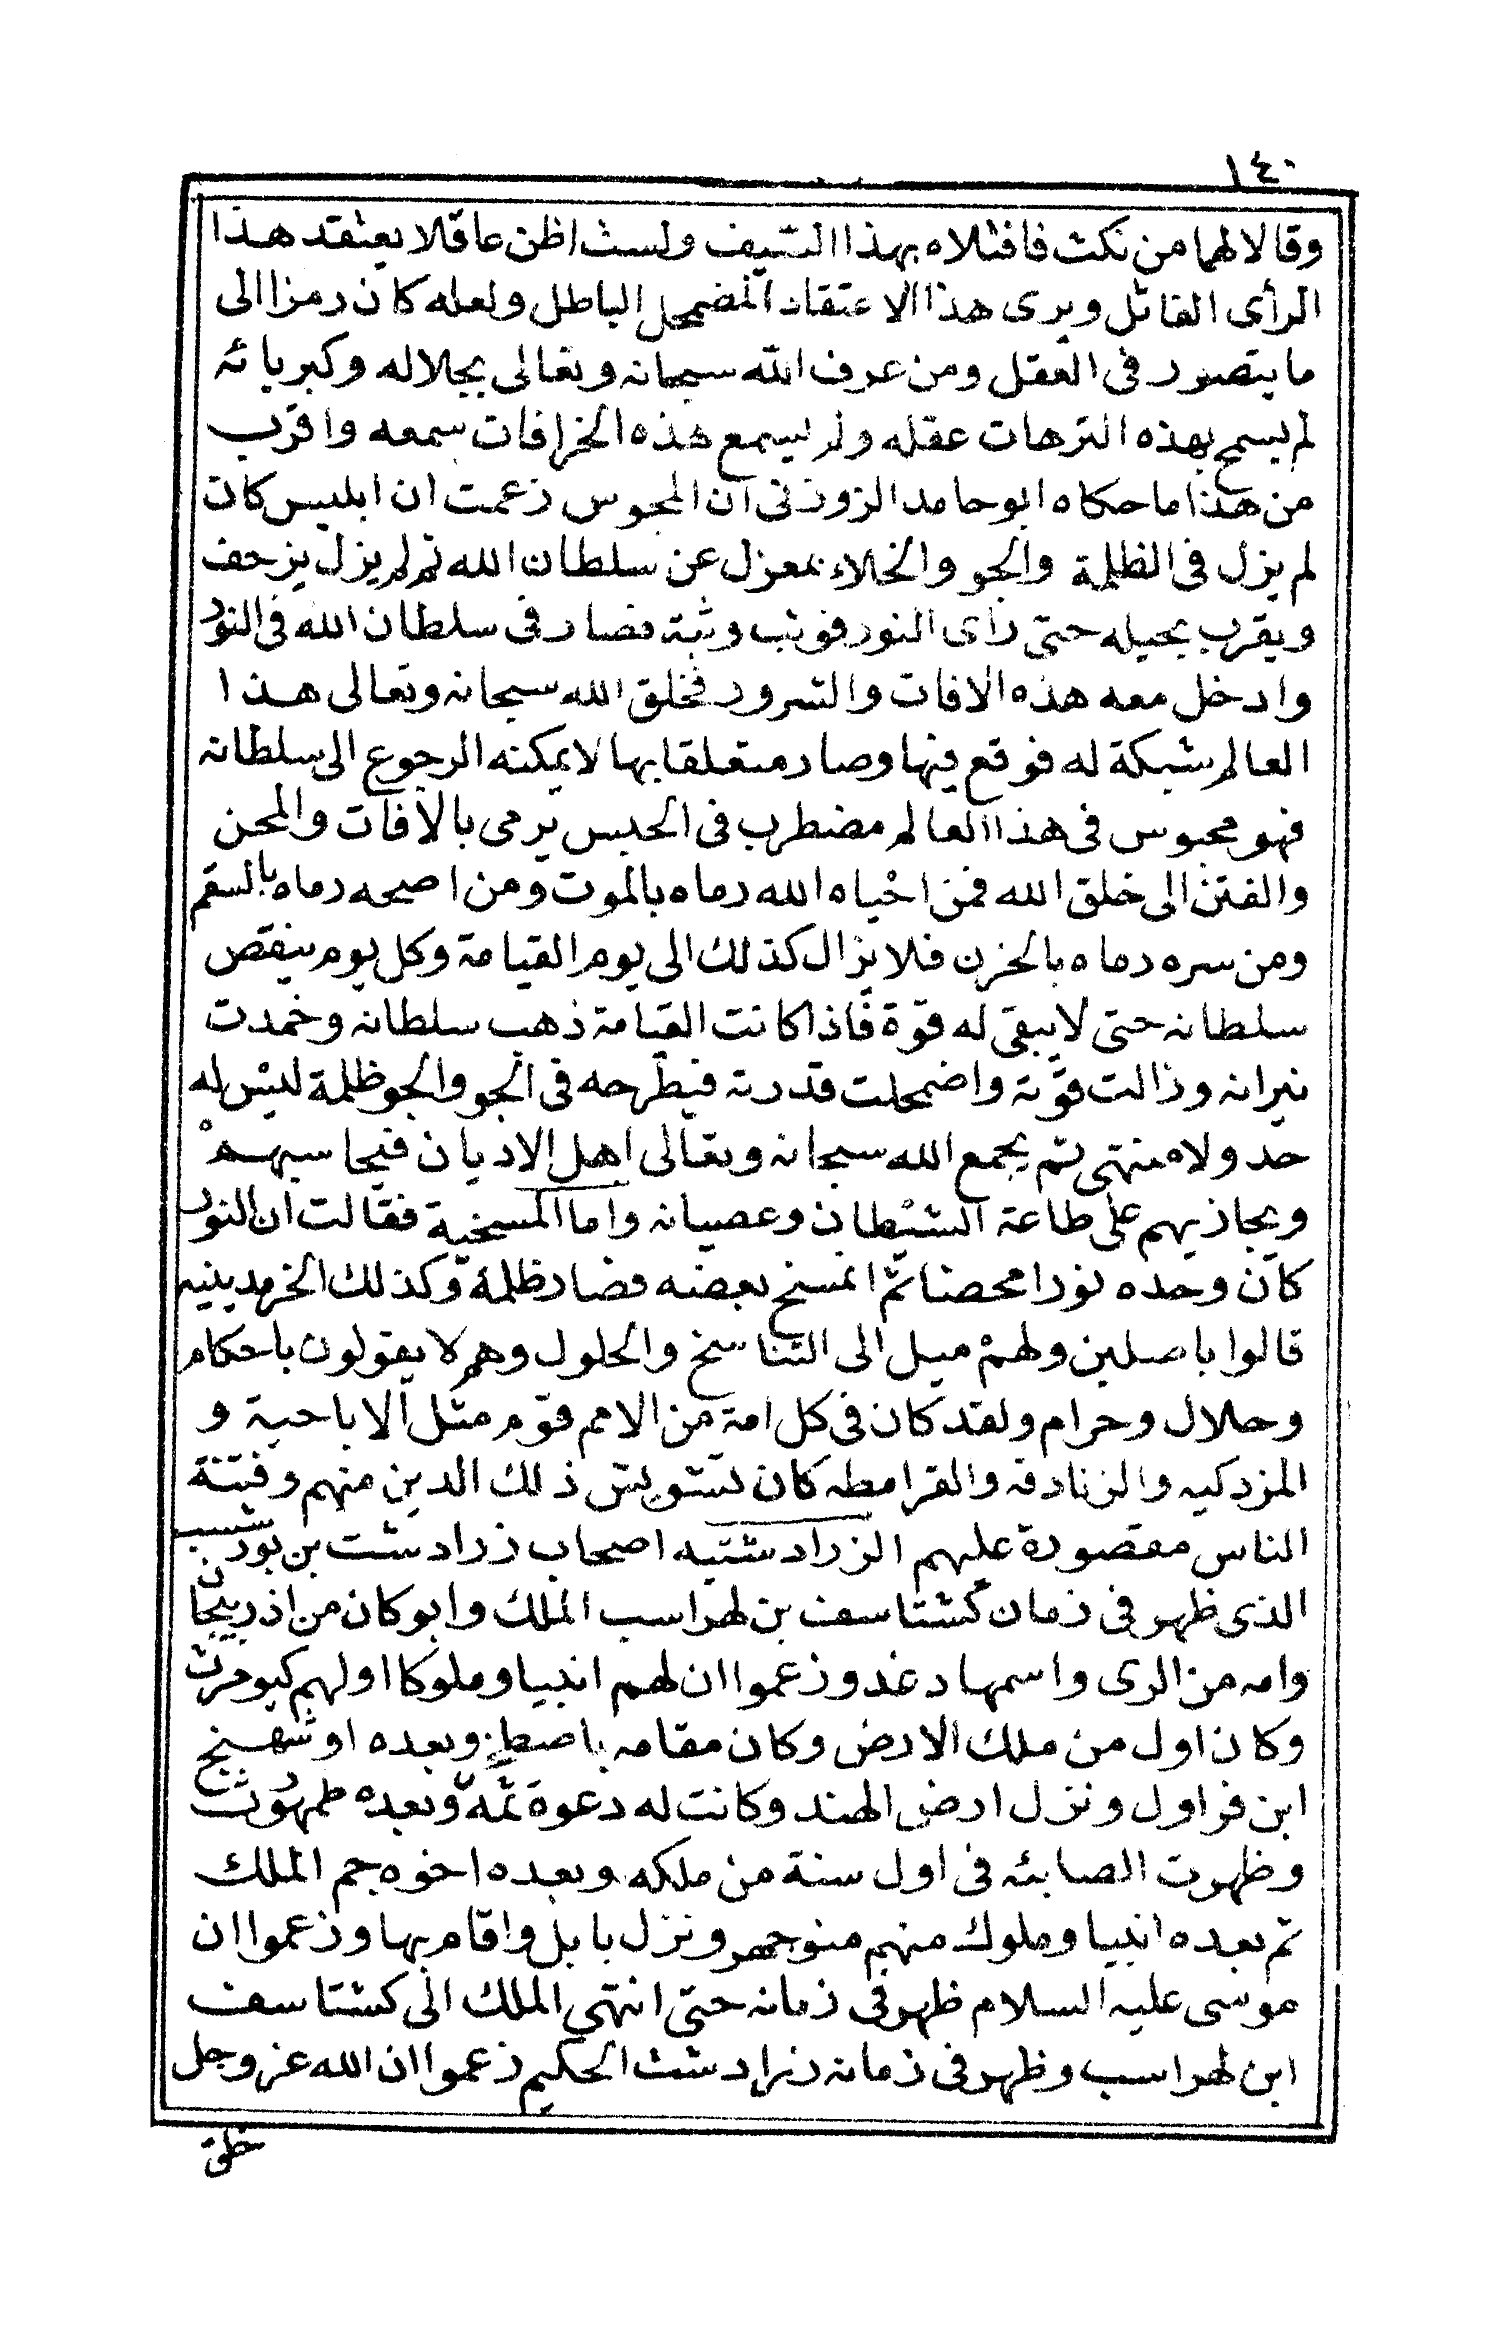 ١٤٠
وقالا لهما من نكث فاقتلاه بهذا السيف ولست اظن عاقلا يعتقد هذا
الرأى الفائل ويرى هذا الاعتقاد المضمحل الباطل ولعله كان رمزا الى
ما يتصور فى العقل ومن عرف الله سبحانه وتعالى بجلاله وكبريائه
لم يسمح بهذه الترهات عقله ولم يسمع هذه الخرافات سمعه واقرب
من هذا ما حكاه ابو حامد الزوزنى ان المجوس زعمت ان ابليس كان
لم يزل فى الظلمة والجو والخلاء بمعزل عن سلطان الله ثم لم يزل يزحف
ويقرب بحيله حتى رأى النور فوثب وثبة فصار فى سلطان الله فى النور
وادخل معه هذه الافات والشرور فخلق الله سبحانه وتعالى هذا
العالم شبكة له فوقع فيها وصار متعلقا بها لا يمكنه الرجوع الى سلطانه
فهو محبوس فى هذا العالم مضطرب فى الحبس يرمى بالافات والمحن
والفتن الى خلق الله فمن احياه الله رماه بالموت ومن اصحه رماه بالسقم
ومن سره رماه بالحزن فلا يزال كذلك الى يوم القيامة وكل يوم ينقص
سلطانه حتى لا يبقى له قوة فاذا كانت القيامة ذهب سلطانه وخمدت
نيرانه وزالت قوته واضمحلت قدرته فيطرحه فى الجو والجو ظلمة ليس له
حد ولا منتهى ثم يجمع الله سبحانه وتعالى اهل الاديان فيحاسبهم
ويجازيهم على طاعة الشيطان وعصيانه واما المسخية فقالت ان النور
كان وحده نورا محضا ثم انمسخ بعضه فصار ظلمة وكذلك الخرمدينيه
قالوا باصلين ولهم ميل الى التناسخ والحلول وهم لا يقولون باحكام
وحلال وحرام ولقد كان فى كل امة من الامم قوم مثل الاباحية و
المزدكيه والزنادقه والقرامطه كان تشويش ذلك الدين منهم وفتنة
الناس مقصورة عليهم الزرادشتيه اصحاب زرادشت بن بورشسب
الذى ظهر فى زمان كشتاسف بن لهراسب الملك وابو كان من اذربيجان
وامه من الرى واسمها دغدو زعموا ان لهم انبيا وملوكا اولهم كيومرث
وكان اول من ملك الارض وكان مقامه باصطخر وبعده اوشهنج
ابن فراول ونزل ارض الهند وكانت له دعوة ثمه وبعده طمهورث
وظهرت الصابئه فى اول سنة من ملكه وبعده اخوه جم الملك
ثم بعده انبيا وملوك منهم منوجهر ونزل بابل واقام بها وزعموا ان
موسى عليه السلام ظهر فى زمانه حتى انتهى الملك الى كشتاسف
ابن لهراسب وظهر فى زمانه زرادشت الحكيم زعموا ان الله عز وجل
خلق